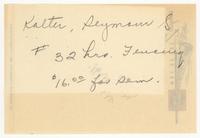 Kalter, Seymour S.
F 32 hrs. Fencing
$16.00 for sem.